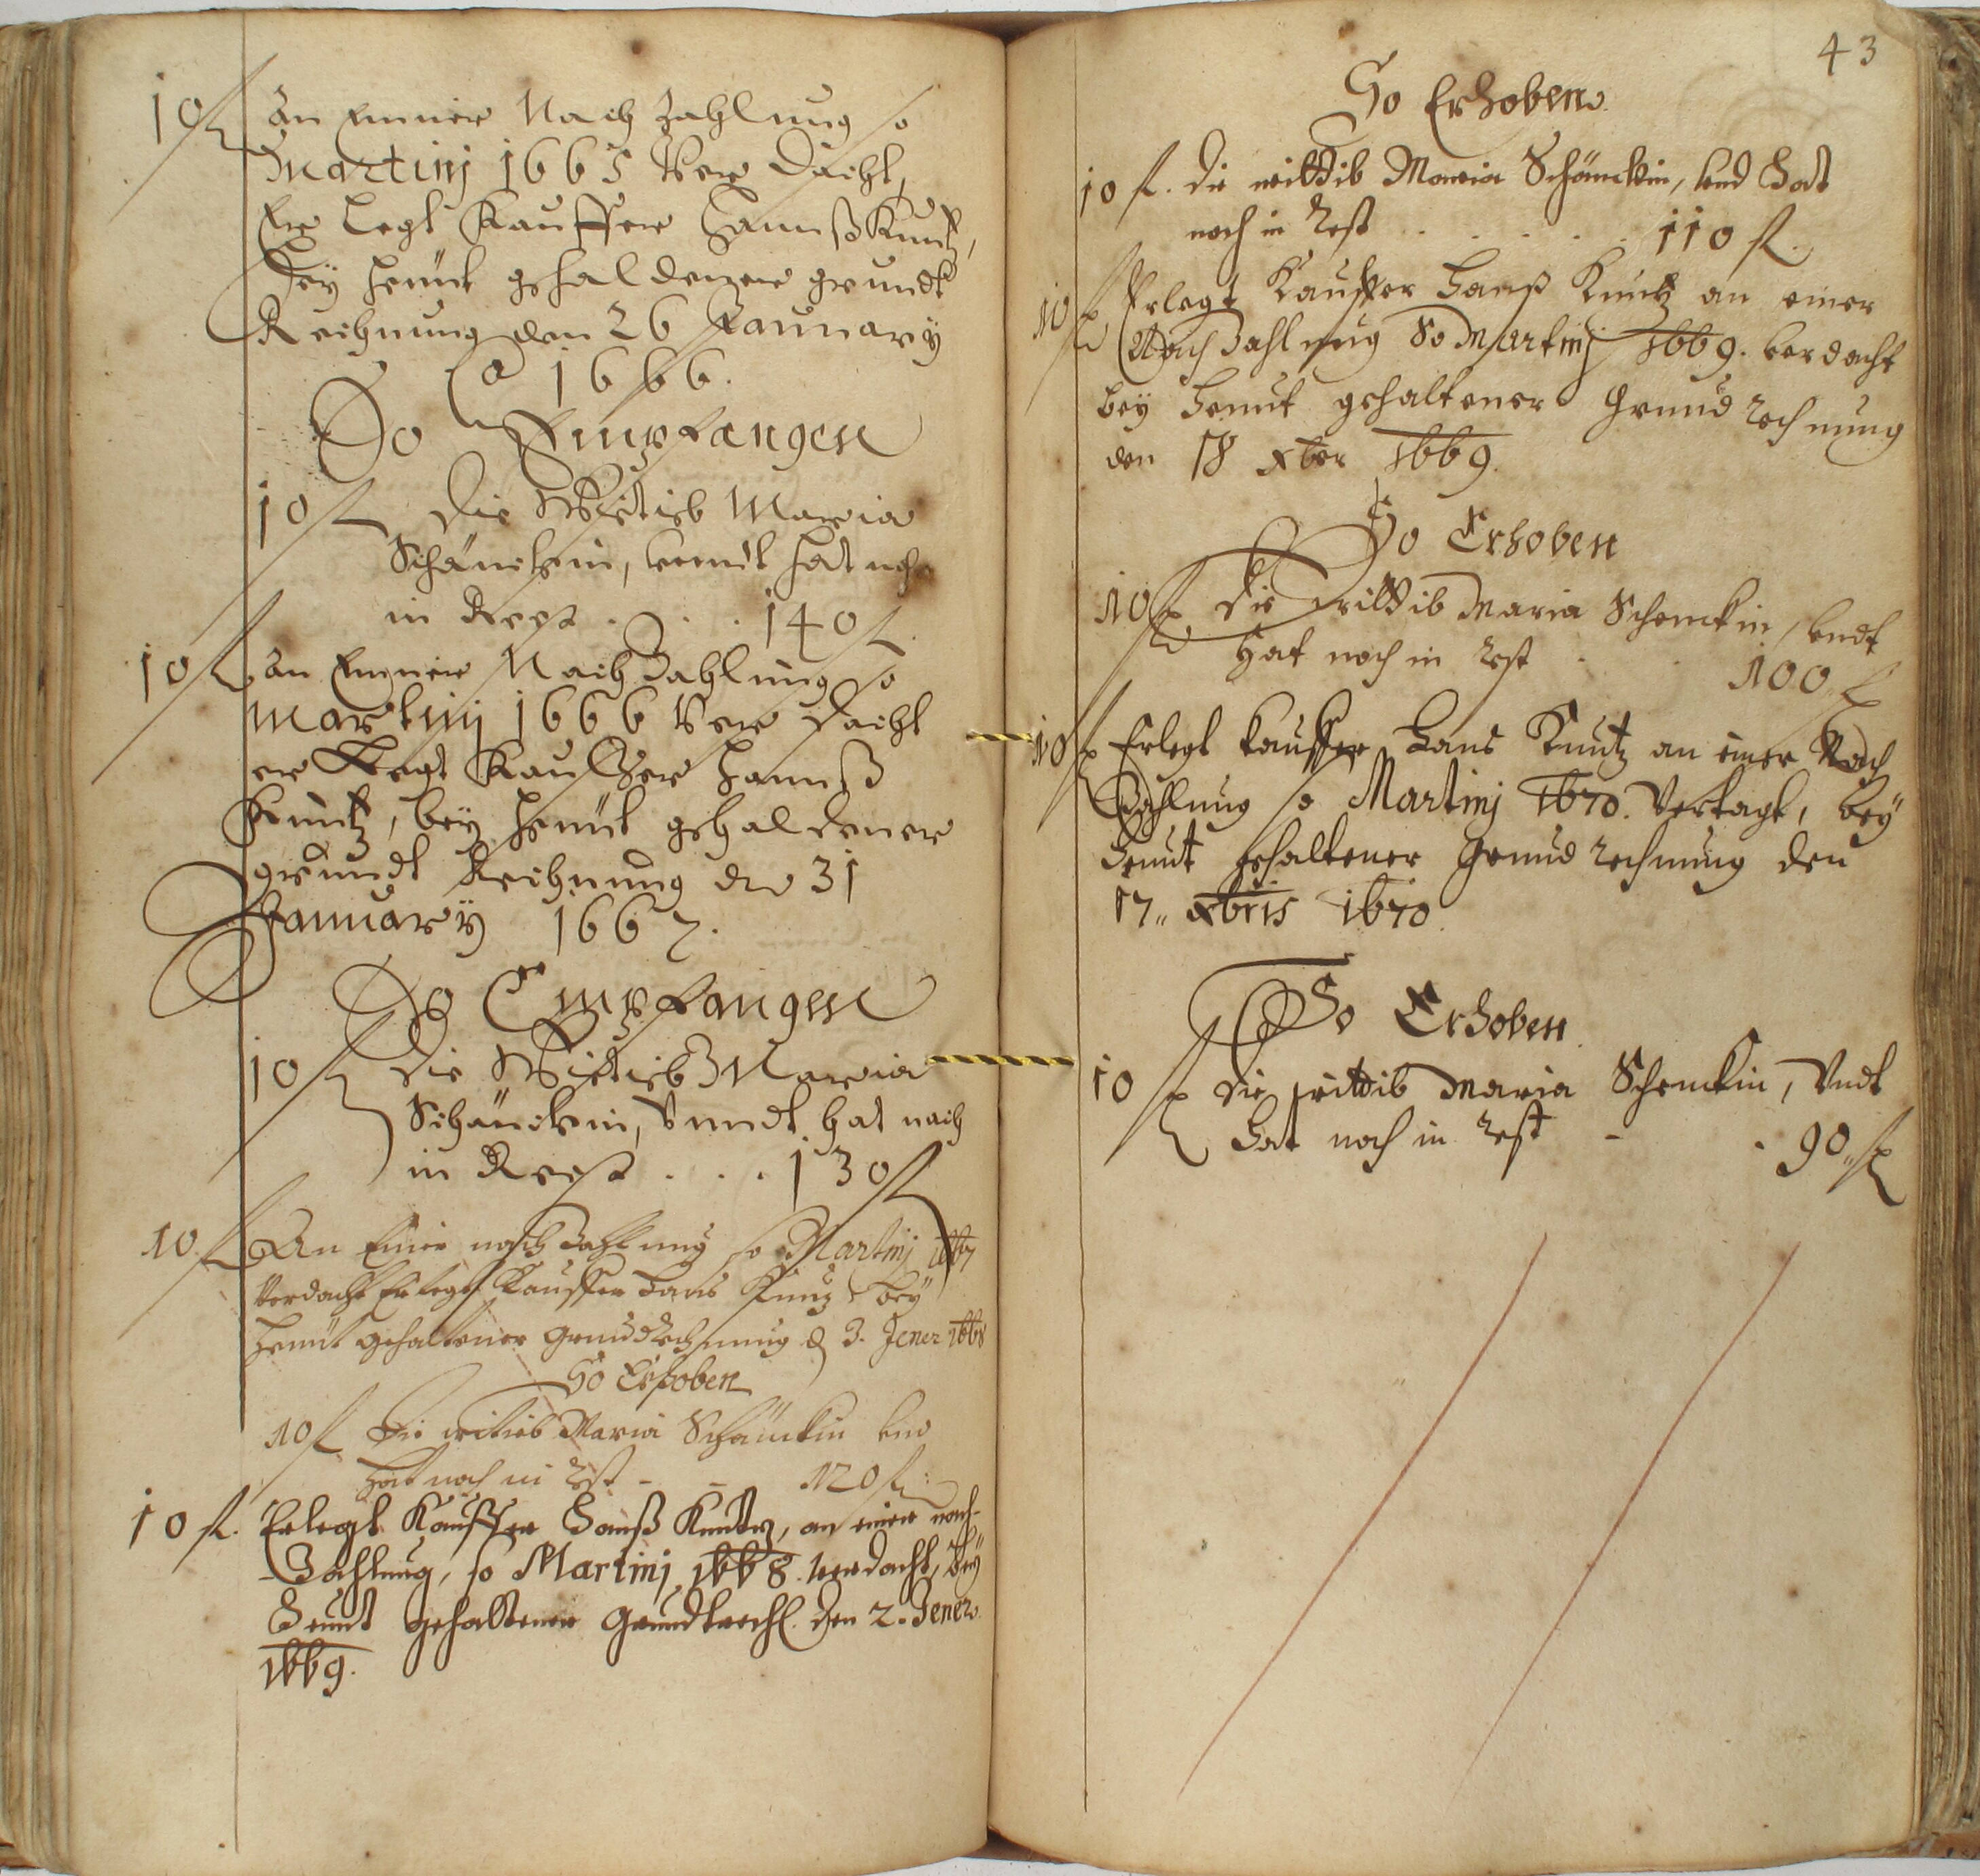 10 fl An Einer Nach Zahlung so
Martinj 1665 Ver Dacht,
Er Legt Kauffer Hannß Kuntz,
Bey heüt gehaldener grundt
Rechnung den 26 Januarÿ
a 1666.
So Empfangen
10 fl Die Wietieb Maria
Schänckin, vnndt hat noch
in Rest . . . 140 fl.
10 fl An Einer Nach Zahlung so
Martinj 1666 Ver Dacht
er Legt Kauffer Hannß
Kuntz, bey heüt gehaldener
grundt Rechnung den 31
Januarÿ 1667.
So Empfangen
10 fl Die Wietieb Maria
Schänckin, Vnndt hat noch
in Rest . . . 130 fl
10. fl An Einer nach Zahlung so Martinj 1667
Verdacht Erlegt Kauffer Hans Kuntz bey
heut gehaltener Grundrechnung d 3. Jener 1668
So Erhoben
10 fl Die witieb Maria Schänckin vnd
hat noch in Rest - - 120 fl:
10 fl. Erlegt Kauffer Hanß Kuntz, an einer nach-
Zahlung, so Martinj 1668. verdacht, beÿ
Heunt gehaltener Grundtrech. den 2. Jener.
1669.
43
So Erhoben.
10 fl. Die wittib Maria Schänckin, vnd Hat
noch in Rest . . . . . 110 fl.
10 fl Erlegt Kauffer Hanß Kuntz an einer
Nach Zahlung So Martinj 1669. verdacht
bey Heunt gehaltener Grund rechnung
den 18 xber 1669.
So Erhoben
10 fl Die wittib Maria Schenckin, vndt
Hat noch in Rest . . 100 fl
10 fl Erlegt kauffer Hans Kuntz an einer Nach
Zahlung so Martinj 1670. Vertagt, beÿ
Heunt gehaltener Grund rechnung den
17,, xbris 1670.
So Erhoben
10 fl Die wittib Maria Schenckin, Vndt
Hat noch in Rest - . 90,, fl